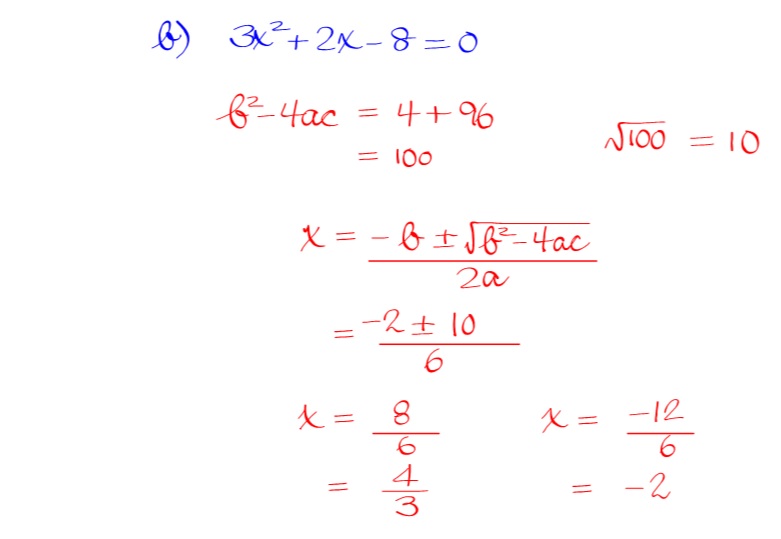 b) 3x² + 2x - 8 = 0
b² - 4ac = 4 + 96
= 100
√100 = 10
x = (-b ± √(b² - 4ac)) / 2a
= (-2 ± 10) / 6
x = 8/6 x = -12/6
= 4/3 = -2